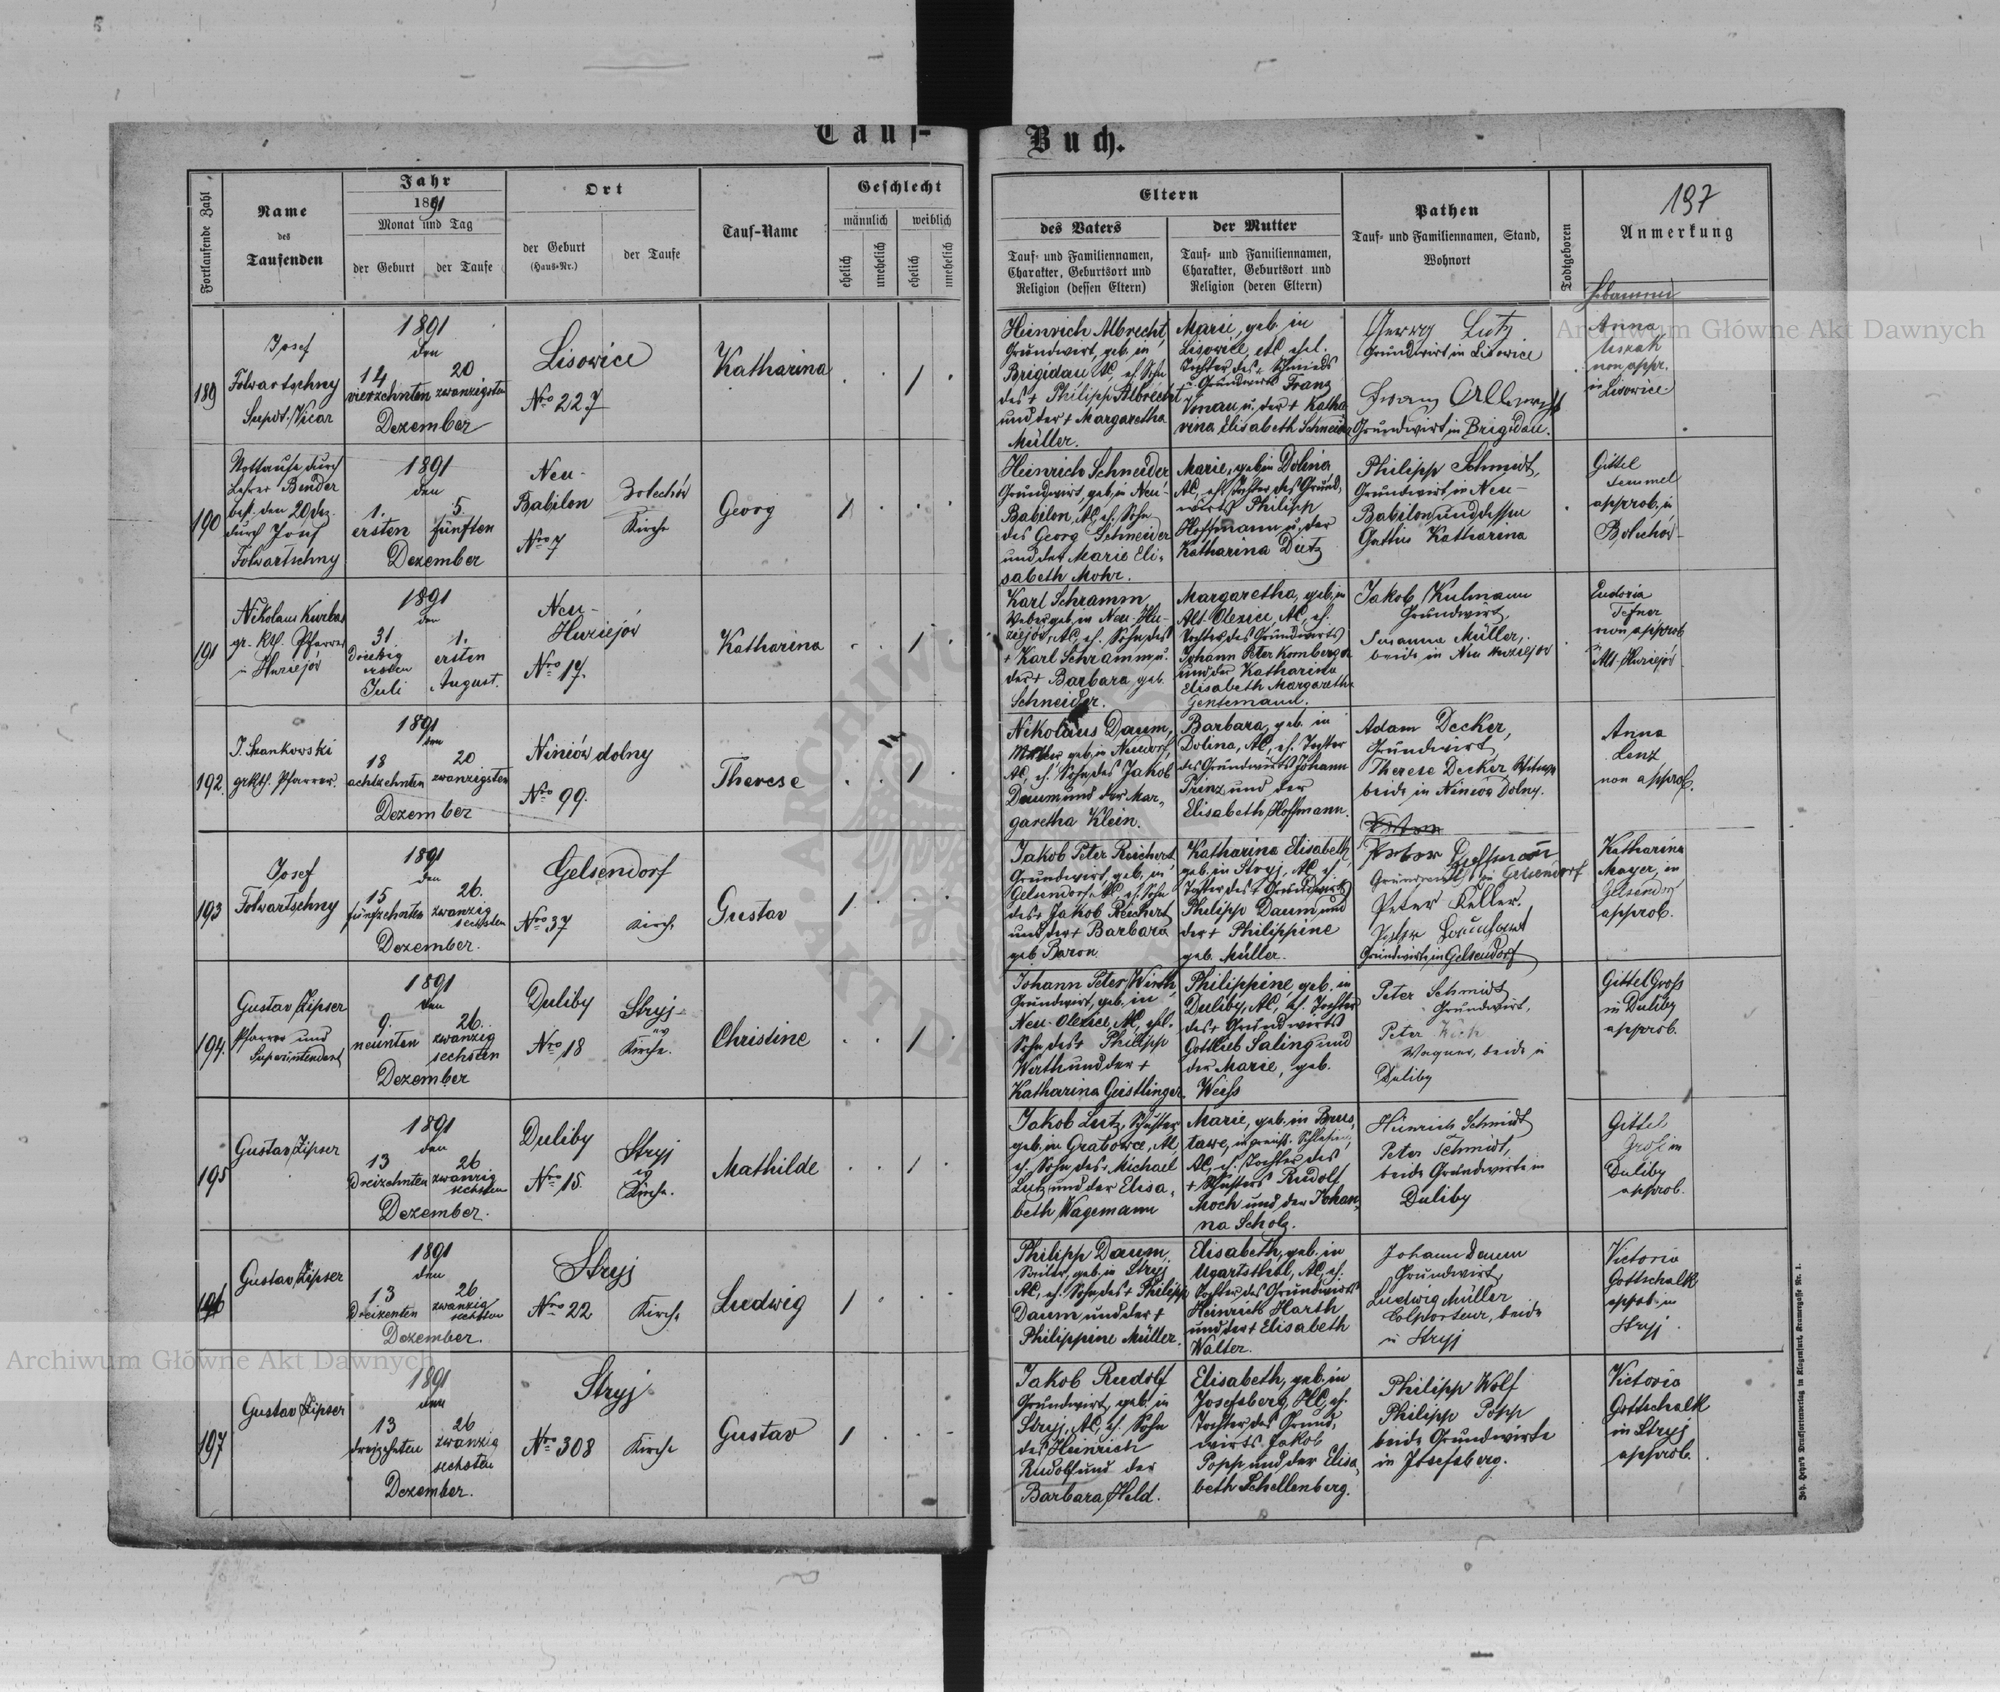 Tauf-
Buch.
Fortlaufende Zahl
Name
des
Taufenden
Jahr
1891
Monat und Tag
der Geburt
der Taufe
Ort
der Geburt
(Haus-Nr.)
der Taufe
Tauf-Name
Geschlecht
männlich
weiblich
ehelich
unehelich
ehelich
unehelich
Eltern
des Vaters
Tauf- und Familiennamen,
Charakter, Geburtsort und
Religion (dessen Eltern)
der Mutter
Tauf- und Familiennamen,
Charakter, Geburtsort und
Religion (deren Eltern)
Pathen
Tauf- und Familiennamen, Stand,
Wohnort
Todtgeboren
197
Anmerkung
Hebamme
189
Josef
Folwartschny
Supdt. Vicar
1891
den
14 20
vierzehnten zwanzigsten
Dezember
Lisowice
Nro 227
Katharina
Heinrich Albrecht,
Grundwirt, geb. in
Brigidau AC, eh. Sohn
des + Philipp Albrecht
und der + Margaretha
Müller.
Marie, geb. in
Lisowice, AC, ehel.
Tochter des + Schmieds
u. Grundwirts Franz
Vonau u. der + Katha
rina Elisabeth Schneider
Georg Lutz
Grundwirt in Lisowice
Grundwirt in Brigidau.
Anna
non appr.
in Lisowice
190
Nottaufe durch
Lehrer Bender
best. den 20 Dez.
durch Josef
Folwartschny
1891
den
1. 5.
ersten fünften
Dezember
Neu-
Babilon
Nro 7
Bolechów
Kirche
Georg
Heinrich Schneider
Grundwirt, geb. in Neu-
Babilon, AC, eh. Sohn
des Georg Schneider
und der Marie Eli-
sabeth Mohr.
Marie, geb in Dolina
AC, eh. Tochter des Grund-
wirts Philipp
Hoffmann u. der
Katharina Dietz
Philipp Schmidt,
Grundwirt in Neu-
Babilon und dessen
Gattin Katharina
Gittel
Semmel
approb. in
Bolechów
191
Nikolaus Kurbas
gr. kth. Pfarrer
in Huziejów
1891
den
31. 1.
Dreißig ersten
ersten
Juli August.
Neu-
Huziejów
Nro 17.
Katharina
Karl Schramm
Weber geb. in Neu-Hu-
ziejów, AC, eh. Sohn des
+ Karl Schramm u.
der + Barbara geb.
Schneider.
Margaretha, geb. in
Alt-Olexice, AC, eh.
Tochter des Grundwirts
Johann Peter Kornberger
und der Katharina
Elisabeth Margaretha
Gentemann.
Jakob Kulmann
Grundwirt,
Susanna Müller,
beide in Neu Huziejów
Eudoxia
non approb
in Alt-Huziejów
192.
J. Szankowski
gr kth. Pfarrer.
1891
den
18 20
achtzehnten zwanzigsten
Dezember
Niniów dolny
Nro 99.
Therese
Nikolaus Daum,
Müller geb. in Neudorf,
AC, eh. Sohn des Jakob
Daum und der Mar-
garetha Klein.
Barbara, geb. in
Dolina, AC, eh. Tochter
des Grundwirts Johann
Prinz und der
Elisabeth Hoffmann.
Adam Decker,
Grundwirt,
Therese Decker,
beide in Niniów Dolny.
Anna
Lenz
non approb.
193
Josef
Folwartschny
1891
den
15 26.
fünfzehnten zwanzig
sechsten
Dezember.
Gelsendorf
Nro 37
Kirche
Gustav
Jakob Peter Reichert,
Grundwirt, geb. in
Gelsendorf, AC, eh. Sohn
des + Jakob Reichert
und der + Barbara
geb. Baron.
Katharina Elisabeth,
geb. in Stryj, AC, eh.
Tochter des Grundwirts
Philipp Daum und
der + Philippine
geb. Müller.
Grundwirt in Gelsendorf
Peter Keller.
Grundwirte in Gelsendorf
Katharina
Mayer, in
Gelsendorf
approb.
194.
Gustav Zipser
Pfarrer und
Superintendent
1891
den
9. 26.
neunten zwanzig
sechsten
Dezember
Duliby
Nro 18
Stryj
ev
Kirche.
Christine
Johann Peter Wirth,
Grundwirt, geb. in
Neu-Olexice, AC, ehl.
Sohn des + Philipp
Wirth und der +
Katharina Geistlinger.
Philippine, geb. in
Duliby, AC, eh. Tochter
des + Grundwirts
Gottlieb Saling und
der Marie, geb.
Weiss
Peter Schmidt
Grundwirt,
Peter
Wagner, beide in
Duliby
Gittel Gross
in Duliby
approb.
195
Gustav Zipser
1891
den
13 26
Dreizehnten zwanzig
sechsten
Dezember.
Duliby
Nro 15.
Stryj
ev
Kirche.
Mathilde
Jakob Lutz, Schuster
geb. in Grabowce, AC,
eh. Sohn des + Michael
Lutz und der Elisa-
beth Wagemann
Marie, geb. in Brus-
tawe, in preuß. Schlesien,
AC, eh. Tochter des
+ Schusters Rudolf
Moch und der Johan-
na Scholz.
Heinrich Schmidt
Peter Schmidt,
beide Grundwirte in
Duliby
Gittel
Groß in
Duliby
approb.
196
Gustav Zipser
1891
den
13 26
Dreizenten zwanzig
sechsten
Dezember.
Stryj
Nro 22
Kirche
Ludwig
Philipp Daum,
Seiler, geb. in Stryj,
AC, eh. Sohn des + Philipp
Daum und der +
Philippine Müller.
Elisabeth, geb. in
Ugartsthal, AC, eh.
Tochter des Grundwirts
Heinrich Harth
und der + Elisabeth
Walter.
Johann Daum
Grundwirt,
Ludwig Müller
Colporteur, beide
in Stryj
Victoria
Gottschalk
approb. in
Stryj.
197
Gustav Zipser
1891
den
13 26
dreizehnten zwanzig
sechsten
Dezember.
Stryj
Nro 308
Kirche
Gustav
Jakob Rudolf
Grundwirt, geb. in
Stryj, AC, eh. Sohn
des Heinrich
Rudolf und der
Barbara Held.
Elisabeth, geb. in
Josefsberg, HC, eh.
Tochter des Grund-
wirts Jakob
Popp und der Elisa-
beth Schellenberg.
Philipp Wolf
Philipp Popp
beide Grundwirte
in Josefsberg.
Victoria
Gottschalk
in Stryj
approb.
Joh. Heyn's Drucksortenverlag in Klagenfurt, Kramergasse Nr. 1.
Archiwum Główne Akt Dawnych
Archiwum Główne Akt Dawnych